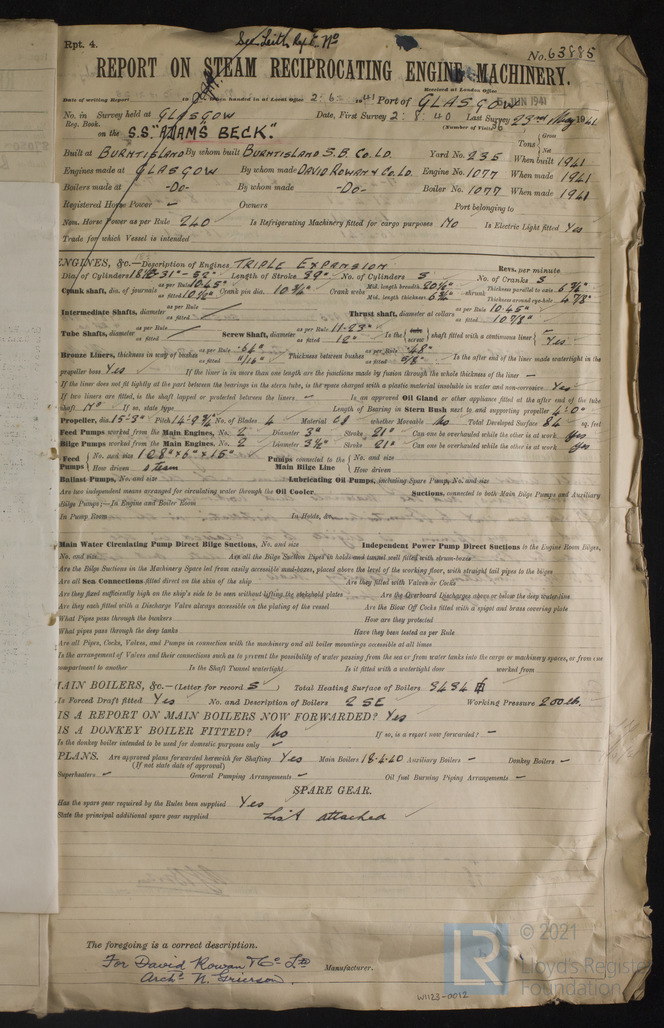 Rpt. 4.
See Leith Rpt. No
No. 63885
REPORT ON STEAM RECIPROCATING ENGINE MACHINERY.
Received at London Office
JUN 1941
Date of writing Report When handed in at Local Office 2.6. 1941 Port of GLASGOW
No. in Reg. Book. Survey held at GLASGOW Date, First Survey 2:8:40 Last Survey 23rd May 1941
(Number of Visits
on the S.S. "ADAM'S BECK." Tons Gross Net
Built at BURNTISLAND By whom built BURNTISLAND S.B. Co. LD. Yard No. 235 When built 1941
Engines made at GLASGOW By whom made DAVID ROWAN & Co. LD. Engine No. 1077 When made 1941
Boilers made at -Do- By whom made -Do- Boiler No. 1077 When made 1941
Registered Horse Power — Owners Port belonging to
Nom. Horse Power as per Rule 240 Is Refrigerating Machinery fitted for cargo purposes No Is Electric Light fitted Yes
Trade for which Vessel is intended
ENGINES, &c.—Description of Engines TRIPLE EXPANSION Revs. per minute
Dia. of Cylinders 18½-31"-52" Length of Stroke 39" No. of Cylinders 3 No. of Cranks 3
Crank shaft, dia. of journals as per Rule 10.45" as fitted 10¾" Crank pin dia. 10¾" Crank webs Mid. length breadth 20¼" Mid. length thickness 6¾" shrunk Thickness parallel to axis 6¾" Thickness around eye-hole 4 7/8"
Intermediate Shafts, diameter as per Rule as fitted Thrust shaft, diameter at collars as per Rule 10.45" as fitted 10 7/8"
Tube Shafts, diameter as per Rule as fitted Screw Shaft, diameter as per Rule 11.23" as fitted 12" Is the tube screw shaft fitted with a continuous liner Yes
Bronze Liners, thickness in way of bushes as per Rule .64" as fitted 11/16" Thickness between bushes as per Rule .48" as fitted 5/8" Is the after end of the liner made watertight in the
propeller boss Yes If the liner is in more than one length are the junctions made by fusion through the whole thickness of the liner —
If the liner does not fit tightly at the part between the bearings in the stern tube, is the space charged with a plastic material insoluble in water and non-corrosive Yes
If two liners are fitted, is the shaft lapped or protected between the liners — Is an approved Oil Gland or other appliance fitted at the after end of the tube
shaft No If so, state type Length of Bearing in Stern Bush next to and supporting propeller 4'-0"
Propeller, dia. 15'-3" Pitch 14'-9¾" No. of Blades 4 Material CI whether Moveable No Total Developed Surface 84 sq. feet
Feed Pumps worked from the Main Engines, No. 2 Diameter 3" Stroke 21" Can one be overhauled while the other is at work Yes
Bilge Pumps worked from the Main Engines, No. 2 Diameter 3½" Stroke 21" Can one be overhauled while the other is at work Yes
Feed Pumps No. and size 1 @ 8" x 6" x 15" How driven Steam Pumps connected to the Main Bilge Line No. and size How driven
Ballast Pumps, No. and size Lubricating Oil Pumps, including Spare Pump, No. and size
Are two independent means arranged for circulating water through the Oil Cooler Suctions, connected to both Main Bilge Pumps and Auxiliary
Bilge Pumps;—In Engine and Boiler Room
In Pump Room In Holds, &c.
Main Water Circulating Pump Direct Bilge Suctions, No. and size Independent Power Pump Direct Suctions to the Engine Room Bilges,
No. and size Are all the Bilge Suction Pipes in holds and tunnel well fitted with strum-boxes
Are the Bilge Suctions in the Machinery Space led from easily accessible mud-boxes, placed above the level of the working floor, with straight tail pipes to the bilges
Are all Sea Connections fitted direct on the skin of the ship Are they fitted with Valves or Cocks
Are they fixed sufficiently high on the ship's side to be seen without lifting the stokehold plates Are the Overboard Discharges above or below the deep water line
Are they each fitted with a Discharge Valve always accessible on the plating of the vessel Are the Blow Off Cocks fitted with a spigot and brass covering plate
What Pipes pass through the bunkers How are they protected
What pipes pass through the deep tanks Have they been tested as per Rule
Are all Pipes, Cocks, Valves, and Pumps in connection with the machinery and all boiler mountings accessible at all times
Is the arrangement of Valves and their connections such as to prevent the possibility of water passing from the sea or from water tanks into the cargo or machinery spaces, or from one
compartment to another Is the Shaft Tunnel watertight Is it fitted with a watertight door worked from
MAIN BOILERS, &c.—(Letter for record S) Total Heating Surface of Boilers 3434
Is Forced Draft fitted Yes No. and Description of Boilers 2 SE Working Pressure 200 lb.
IS A REPORT ON MAIN BOILERS NOW FORWARDED? Yes
IS A DONKEY BOILER FITTED? No If so, is a report now forwarded? —
Is the donkey boiler intended to be used for domestic purposes only
PLANS. Are approved plans forwarded herewith for Shafting Yes Main Boilers 18.4.40 Auxiliary Boilers — Donkey Boilers —
(If not state date of approval)
Superheaters General Pumping Arrangements — Oil fuel Burning Piping Arrangements —
SPARE GEAR.
Has the spare gear required by the Rules been supplied Yes
State the principal additional spare gear supplied List attached
The foregoing is a correct description.
For David Rowan & Co Ld Manufacturer.
Archd. N. Grierson.
© 2021
LR
Lloyd's Register
Foundation
W1123-0012